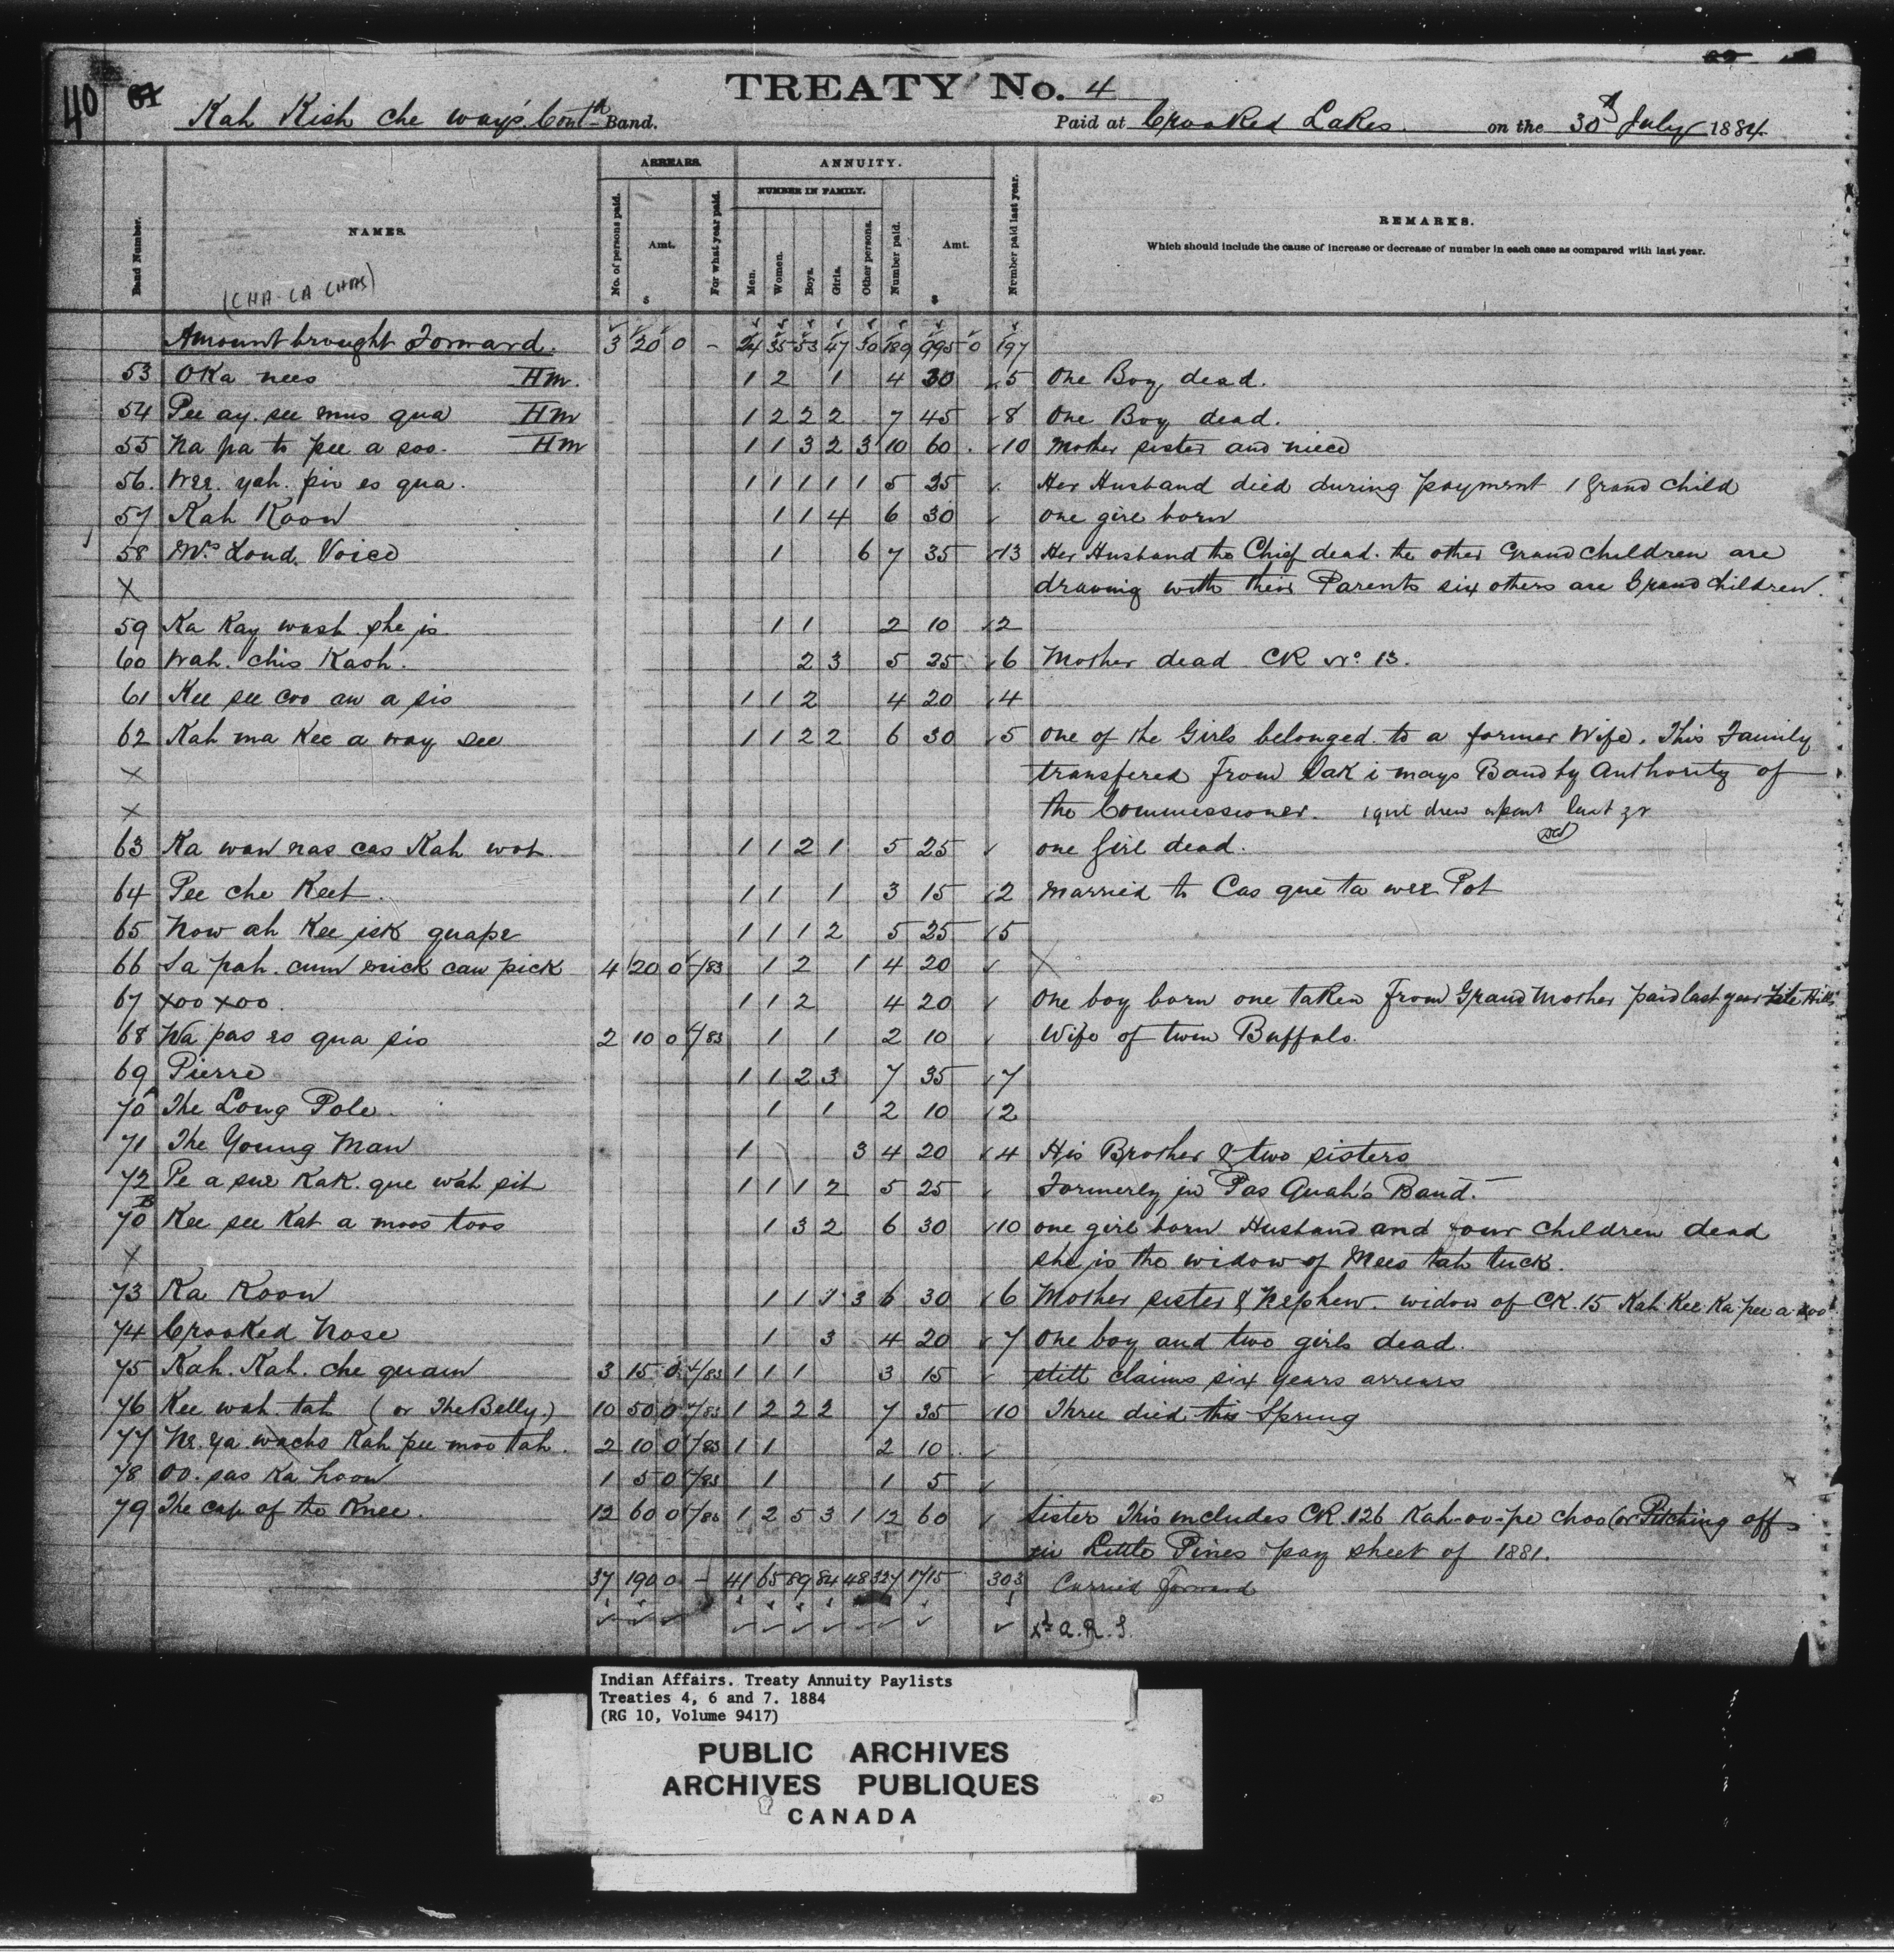 40
TREATY No. 4
Kah Kish che way's Contd Band.
Paid at Crooked Lakes. on the 30th July 1884
Band Number.
NAMES.
(CHA-CA CHAS)
ARREARS.
No. of persons paid.
Amt.
$
For what year paid.
ANNUITY.
NUMBER IN FAMILY.
Men.
Women.
Boys.
Girls.
Other persons.
Number paid.
Amt.
$
Number paid last year.
REMARKS.
Which should include the cause of increase or decrease of number in each case as compared with last year.
Amount brought Forward. 3 20 0 - 24 35 53 47 30 189 995 0 197
53 OKa nees Hm. 1 2 1 4 30 5 One Boy dead.
54 Pee ay. see mus qua Hm 1 2 2 2 7 45 8 One Boy dead.
55 Na pa to pee a soo. Hm 1 1 3 2 3 10 60 10 Mother sister and niece
56. Wee. yah. pin es qua. 1 1 1 1 1 5 25 Her Husband died during payment 1 Grand child
57 Kah Koon 1 1 4 6 30 one girl born
58 Mrs Loud Voice 1 6 7 35 13 Her Husband the Chief dead. the other Grand children are
X drawing with their Parents six others are Grand children.
59 Ka Kay wash she is 1 1 2 10 2
60 Wah. chis Kaoh. 2 3 5 25 6 Mother dead CK No. 13.
61 Kee see coo aw a sis 1 1 2 4 20 4
62 Kah ma Kee a way see 1 1 2 2 6 30 5 one of the Girls belonged to a former Wife. This Family
X transfered from Sak i mays Band by Authority of
X the Commissioner. 1 girl drew apart last yr
63 Ka wan nas cas Kah wot. 1 1 2 1 5 25 one Girl dead.
64 Pee che Keet. 1 1 1 3 15 2 Married to Cas que ta wee Pot
65 Now ah Kee jek quape 1 1 1 2 5 25 5
66 Sa pah. cum mick caw pick 4 20 0 /83 1 2 1 4 20 X
67 Xoo Xoo. 1 1 2 4 20 One boy born one taken from Grand Mother paid last year File Hills
68 Wa pas es qua sis 2 10 0 /83 1 1 2 10 Wife of twin Buffalo.
69 Pierre 1 1 2 3 7 35 7
70A The Long Pole. 1 1 2 10 2
71 The Young Man 1 3 4 20 4 His Brother & two sisters
72 Pe a sue Kak. que wah sit 1 1 1 2 5 25 Formerly in Pas Quah's Band.
70B Kee see Kat a moos toos 1 3 2 6 30 10 one girl born Husband and four children dead
X she is the widow of Mees tah tuck.
73 Ka Koon 1 1 1 3 6 30 6 Mother sister & Nephew. widow of CK. 15 Kah Kee Ka pee a xoo
74 Crooked Nose 1 3 4 20 7 One boy and two girls dead.
75 Kah. Kah. che quam 3 15 0 /83 1 1 1 3 15 still claims six years arrears
76 Kee wah tah (or The Belly.) 10 50 0 /83 1 2 2 2 7 35 10 Three died this Spring
77 Ne. ya wachs Kah pee moo tah. 2 10 0 /83 1 1 2 10
78 Oo. sas Ka hoow 1 5 0 /83 1 1 5
79 The cap of the Knee. 12 60 0 /83 1 2 5 3 1 12 60 Sister This includes CK. 126 Kah-oo-pe choo (or Pitching off
in Little Pines pay sheet of 1881.
37 190 0 - 41 65 89 84 48 327 1715 303 Carried Forward
A.R.S.
Indian Affairs. Treaty Annuity Paylists
Treaties 4, 6 and 7. 1884
(RG 10, Volume 9417)
PUBLIC ARCHIVES
ARCHIVES PUBLIQUES
CANADA